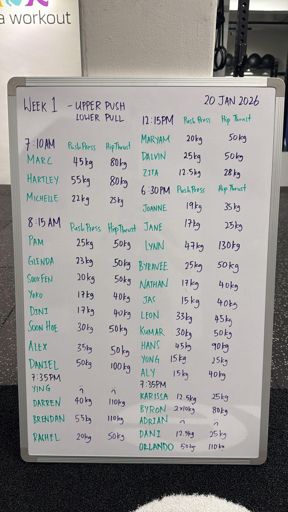 a workout
WEEK 1 - UPPER PUSH
LOWER PULL
20 JAN 2026
7:10AM Push Press Hip Thrust
MARC 45kg 80kg
HARTLEY 55kg 80kg
MICHELLE 22kg 25kg
8:15AM Push Press Hip Thrust
PAM 25kg 50kg
GLENDA 23kg 50kg
SOOFEN 20kg 50kg
YOKO 17kg 40kg
DINI 17kg 40kg
SOON HOE 30kg 50kg
ALEX 35kg 50kg
DANIEL 50kg 100kg
7:35PM
YING
DARREN 40kg 110kg
BRENDAN 55kg 110kg
RACHEL 20kg 50kg
12:15PM Push Press Hip Thrust
MARYAM 20kg 50kg
DALVIN 25kg 50kg
ZITA 12.5kg 28kg
6:30PM Push Press Hip Thrust
JOANNE 19kg 35kg
JANE 17kg 25kg
LYNN 47kg 130kg
25kg 50kg
NATHAN 17kg 40kg
JAS 15kg 40kg
LEON 33kg 45kg
KUMAR 30kg 50kg
HANS 45kg 90kg
YONG 15kg 25kg
ALY 15kg 40kg
7:35PM
KARISSA 12.5kg 25kg
BYRON 2x10kg 80kg
ADRIAN
DANI 12.5kg 25kg
ORLANDO 50kg 110kg